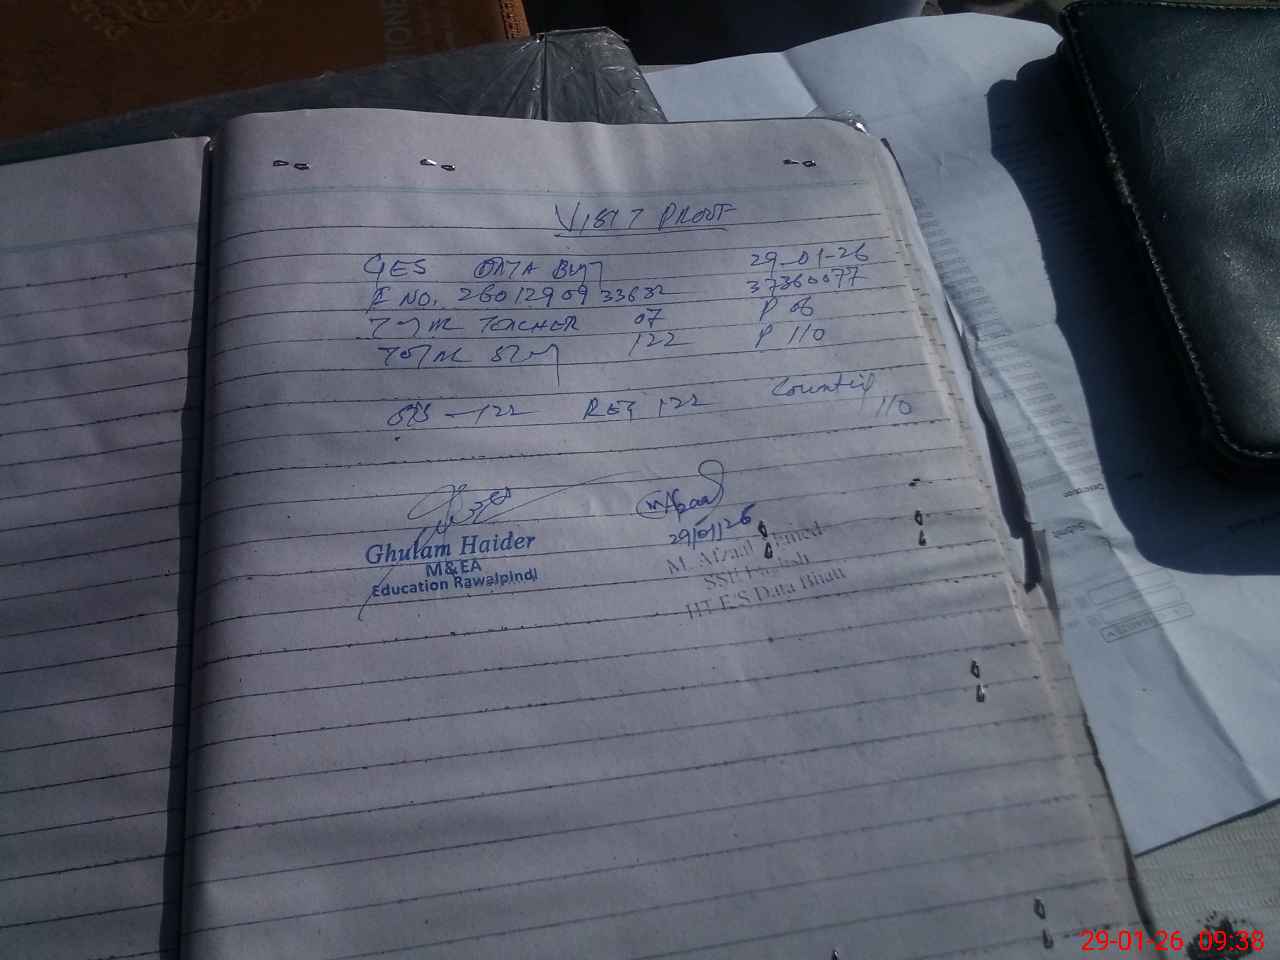 VISIT PROOF
GES DATA BHT 29-01-26
E NO. 26012909 33632 37360077
TOTAL TEACHER 07 P 06
TOTAL STU 122 P 110
SIS - 122 REG 122 Counted 110
Ghulam Haider
M&EA
Education Rawalpindi
29/01/26
M. Afzaal Ahmed
SSE English
HT E/S Data Bhatt
29-01-26 09:38